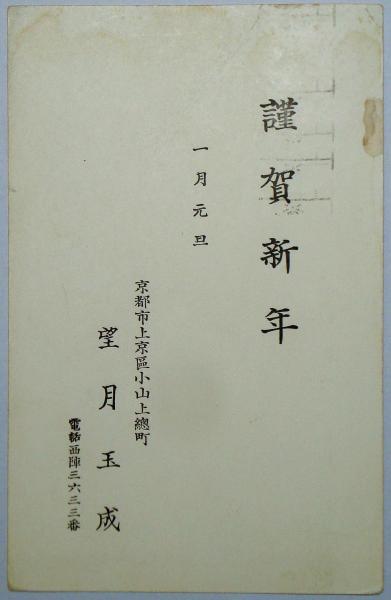 謹賀新年
一月元旦
京都市上京區小山上總町
望月玉成
電話西陣三六三三番